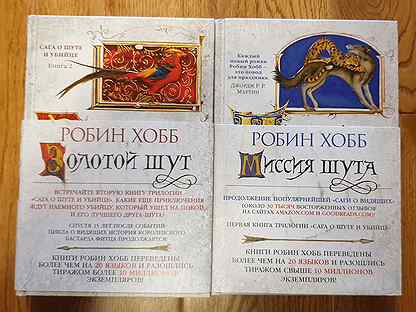 САГА О ШУТЕ И УБИЙЦЕ
Книга 2
РОБИН ХОББ
Золотой шут
ВСТРЕЧАЙТЕ ВТОРУЮ КНИГУ ТРИЛОГИИ
«САГА О ШУТЕ И УБИЙЦЕ». КАКИЕ ЕЩЕ ПРИКЛЮЧЕНИЯ
ЖДУТ НАЕМНОГО УБИЙЦУ, КОТОРЫЙ УШЕЛ НА ПОКОЙ,
И ЕГО ЛУЧШЕГО ДРУГА ШУТА?
СПУСТЯ 15 ЛЕТ ПОСЛЕ СОБЫТИЙ
ЦИКЛА О ВИДЯЩИХ ИСТОРИЯ КОРОЛЕВСКОГО
БАСТАРДА ФИТЦА ПРОДОЛЖАЕТСЯ
КНИГИ РОБИН ХОББ ПЕРЕВЕДЕНЫ
БОЛЕЕ ЧЕМ НА 20 ЯЗЫКОВ И РАЗОШЛИСЬ
ТИРАЖОМ БОЛЕЕ 10 МИЛЛИОНОВ
ЭКЗЕМПЛЯРОВ!
Каждый
новый роман
Робин Хобб –
это повод
для праздника.
Джордж Р. Р.
Мартин
РОБИН ХОББ
Миссия шута
ПРОДОЛЖЕНИЕ ПОПУЛЯРНЕЙШЕЙ «САГИ О ВИДЯЩИХ»
(ОКОЛО 30 ТЫСЯЧ ВОСТОРЖЕННЫХ ОТЗЫВОВ
НА САЙТАХ AMAZON.COM И GOODREADS.COM)!
ПЕРВАЯ КНИГА ТРИЛОГИИ «САГА О ШУТЕ И УБИЙЦЕ»
КНИГИ РОБИН ХОББ ПЕРЕВЕДЕНЫ
БОЛЕЕ ЧЕМ НА 20 ЯЗЫКОВ И РАЗОШЛИСЬ
ТИРАЖОМ СВЫШЕ 10 МИЛЛИОНОВ
ЭКЗЕМПЛЯРОВ!